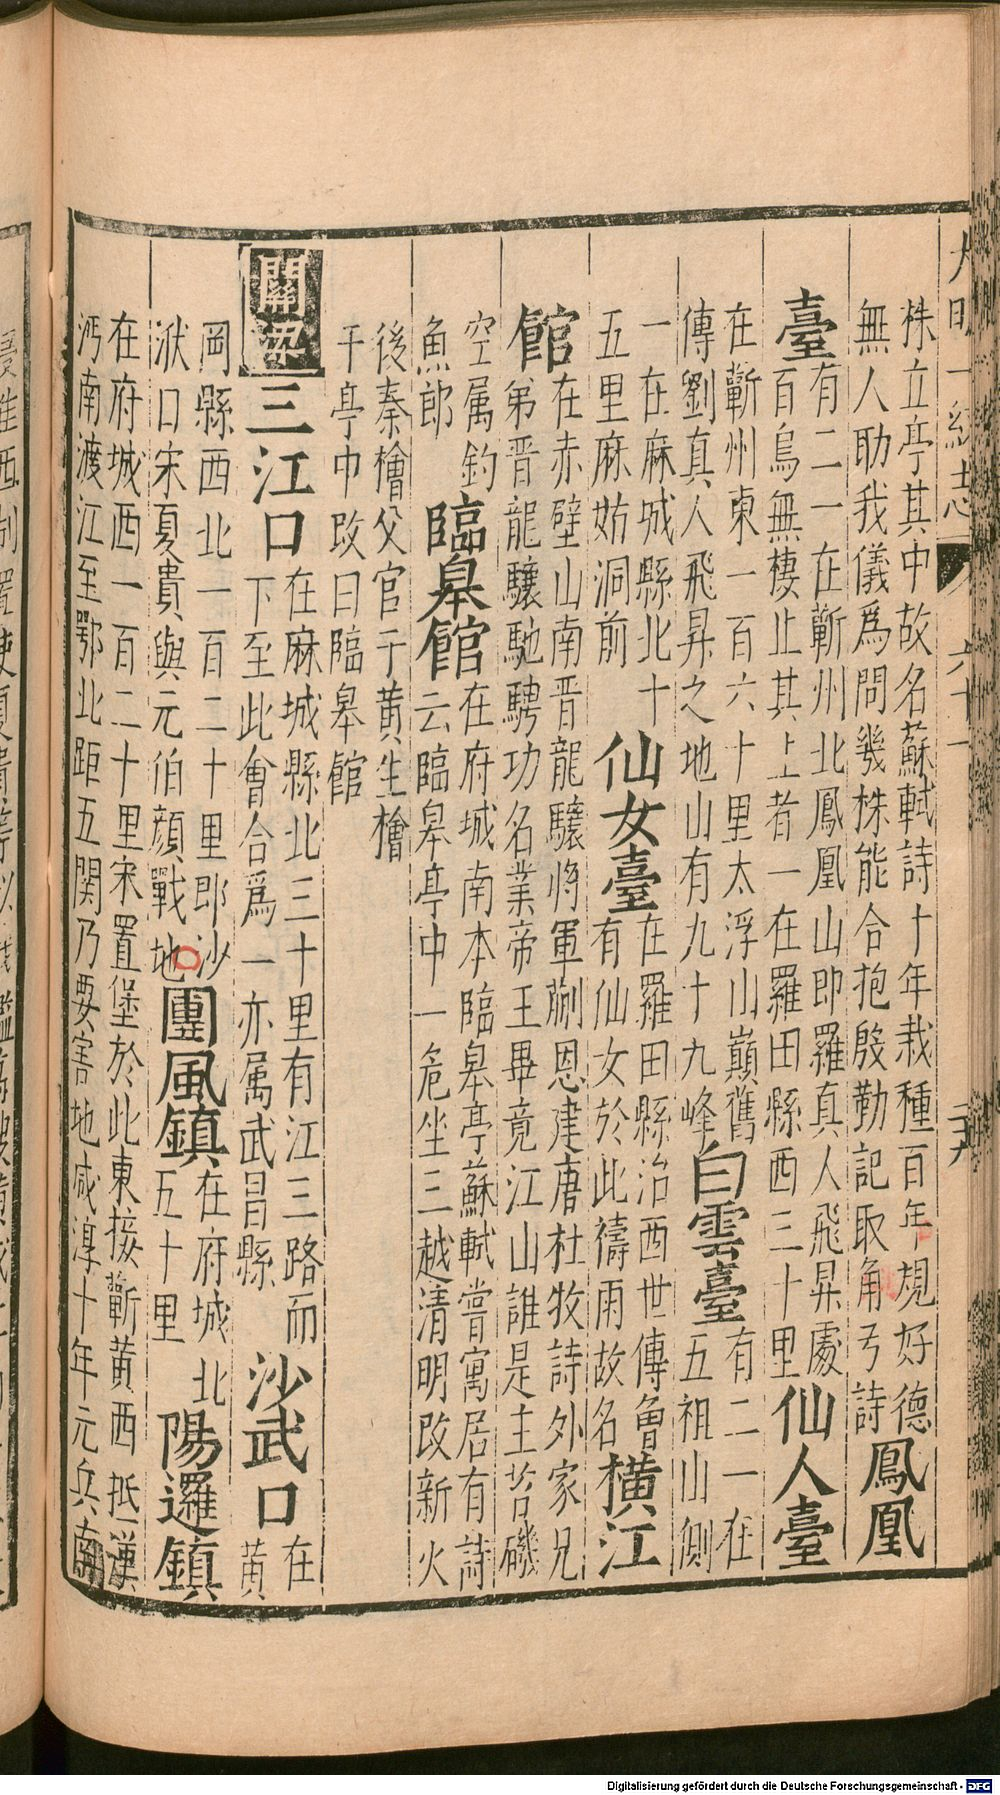 大明一統志 六十一
株立亭其中故名蘇軾詩十年栽種百年規好德
無人助我儀爲問幾株能合抱殷勤記取角弓詩
鳳凰
臺
有二一在蘄州北鳳凰山即羅真人飛昇處
百鳥無棲止其上者一在羅田縣西三十里
仙人臺
在蘄州東一百六十里太浮山巔舊
傳劉真人飛昇之地山有九十九峰
白雲臺
有二一在
五祖山側
一在麻城縣北十
五里麻姑洞前
仙女臺
在羅田縣治西世傳魯
有仙女於此禱雨故名
橫江
館
在赤壁山南晋龍驤將軍蒯恩建唐杜牧詩外家兄
弟晋龍驤馳騁功名業帝王畢竟江山誰是主苔磯
空属釣
魚郎
臨皋館
在府城南本臨皋亭蘇軾嘗寓居有詩
云臨皋亭中一危坐三越清明改新火
後秦檜父官于黄生檜
于亭中改曰臨皋館
關梁
三江口
在麻城縣北三十里有江三路而
下至此會合爲一亦属武昌縣
沙武口
在
黄
岡縣西北一百二十里即沙
洑口宋夏貴與元伯顔戰地
團風鎮
在府城北
五十里
陽邏鎮
在府城西一百二十里宋置堡於此東接蘄黄西抵漢
沔南渡江至鄂北距五関乃要害地咸淳十年元兵南
Digitalisierung gefördert durch die Deutsche Forschungsgemeinschaft - DFG